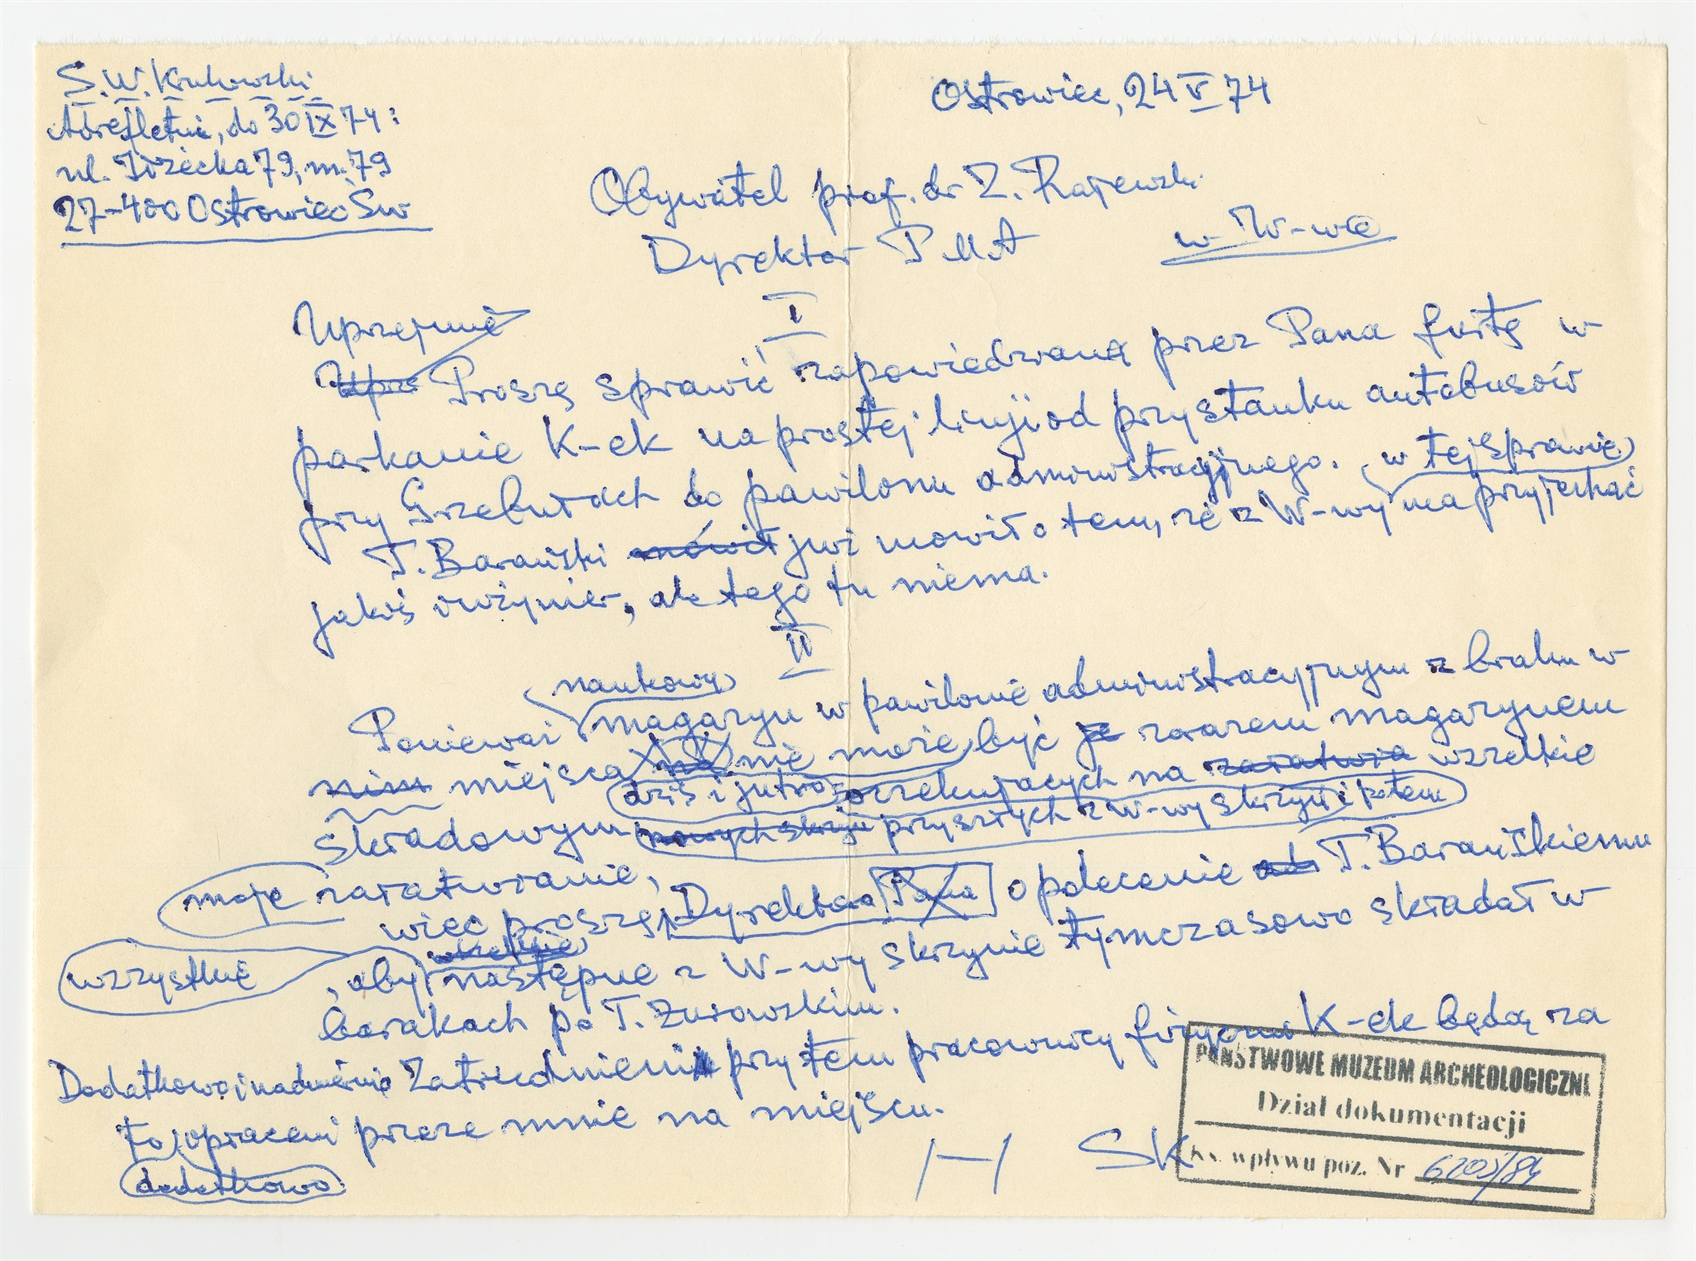 S.W. Krukowski
Adres letni, do 30 IX 74:
ul. Iłżecka 79, m. 79
27-400 Ostrowiec Św
Ostrowiec, 24 V 74
Obywatel prof. dr Z. Rajewski
Dyrektor P M A
w W-wie
I
Uprzejmie
Uprz Proszę sprawić zapowiedzianą przez Pana furtę w
parkanie K-ek na prostej linji od przystanku autobusów
przy Grzebutach do pawilonu administracyjnego.
w tej sprawie
T. Barański mówił już mówił o tem, że z W-wy ma przyjechać
jakiś inżynier, ale tego tu niema.
II
naukowy
Ponieważ magazyn w pawilonie administracyjnym z braku w
nim miejsca nie może być zarazem magazynem
dziś i jutro oczekujących na wszelkie
składowym nowych skrzyń przyszłych z W-wy skrzyń i potem
moje
więc proszę Dyrektora Pana o polecenie T. Barańskiemu
wszelkie
wszystkie
, aby następne z W-wy skrzynie tymczasowo składał w
barakach po T. Żurowskim.
Dodatkowo i nadmiernie Zatrudnieni przytem pracownicy fizyczni K-ek będą za
to opłaceni przeze mnie na miejscu.
dodatkowo
SK
PAŃSTWOWE MUZEUM ARCHEOLOGICZNE
Dział dokumentacji
Ks. wpływu poz. Nr